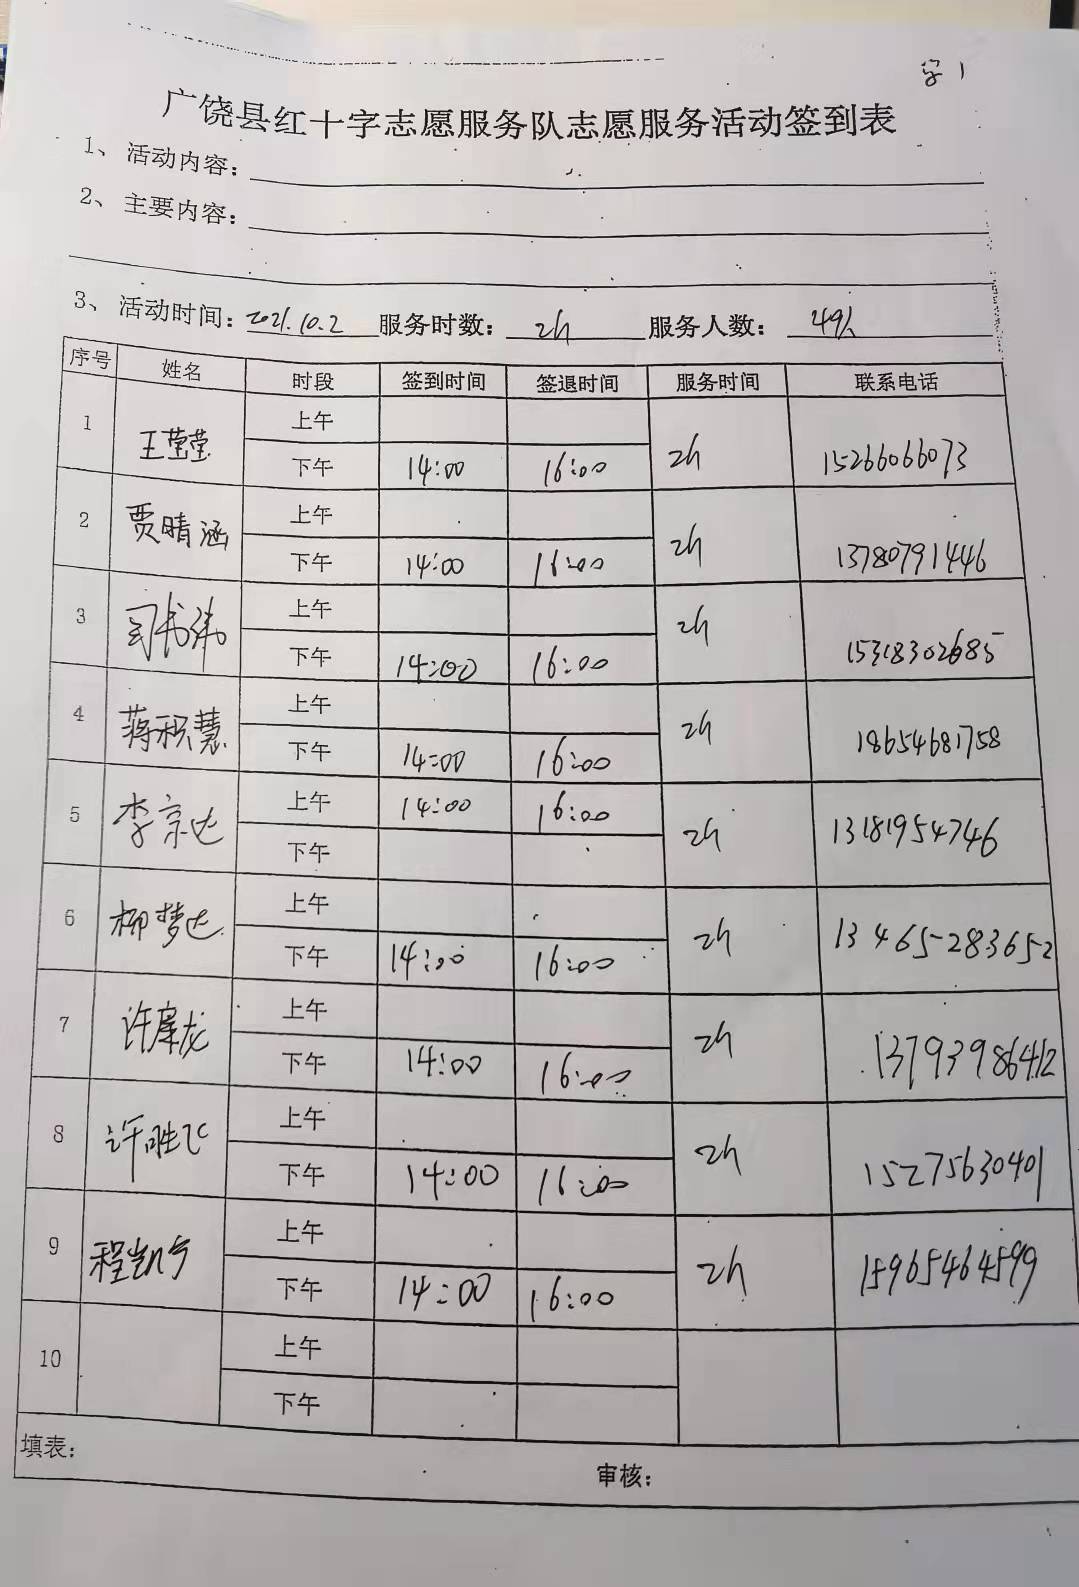 字1
广饶县红十字志愿服务队志愿服务活动签到表
1、活动内容：
2、主要内容：
3、活动时间：2021.10.2 服务时数：2h 服务人数：49人
序号 姓名 时段 签到时间 签退时间 服务时间 联系电话
1 王莹莹 上午
下午 14:00 16:00 2h 15266066073
2 贾晴涵 上午
下午 14:00 16:00 2h 13780791446
3 司书祎 上午
下午 14:00 16:00 2h 15318302685
4 蒋积慧 上午
下午 14:00 16:00 2h 18654681758
5 李京达 上午 14:00 16:00 2h 13181954746
下午
6 柳梦达 上午
下午 14:00 16:00 2h 13465283652
7 许摩龙 上午
下午 14:00 16:00 2h 13793986412
8 许胜飞 上午
下午 14:00 16:00 2h 15275630401
9 程凯兮 上午
下午 14:00 16:00 2h 15965464599
10 上午
下午
填表：
审核：